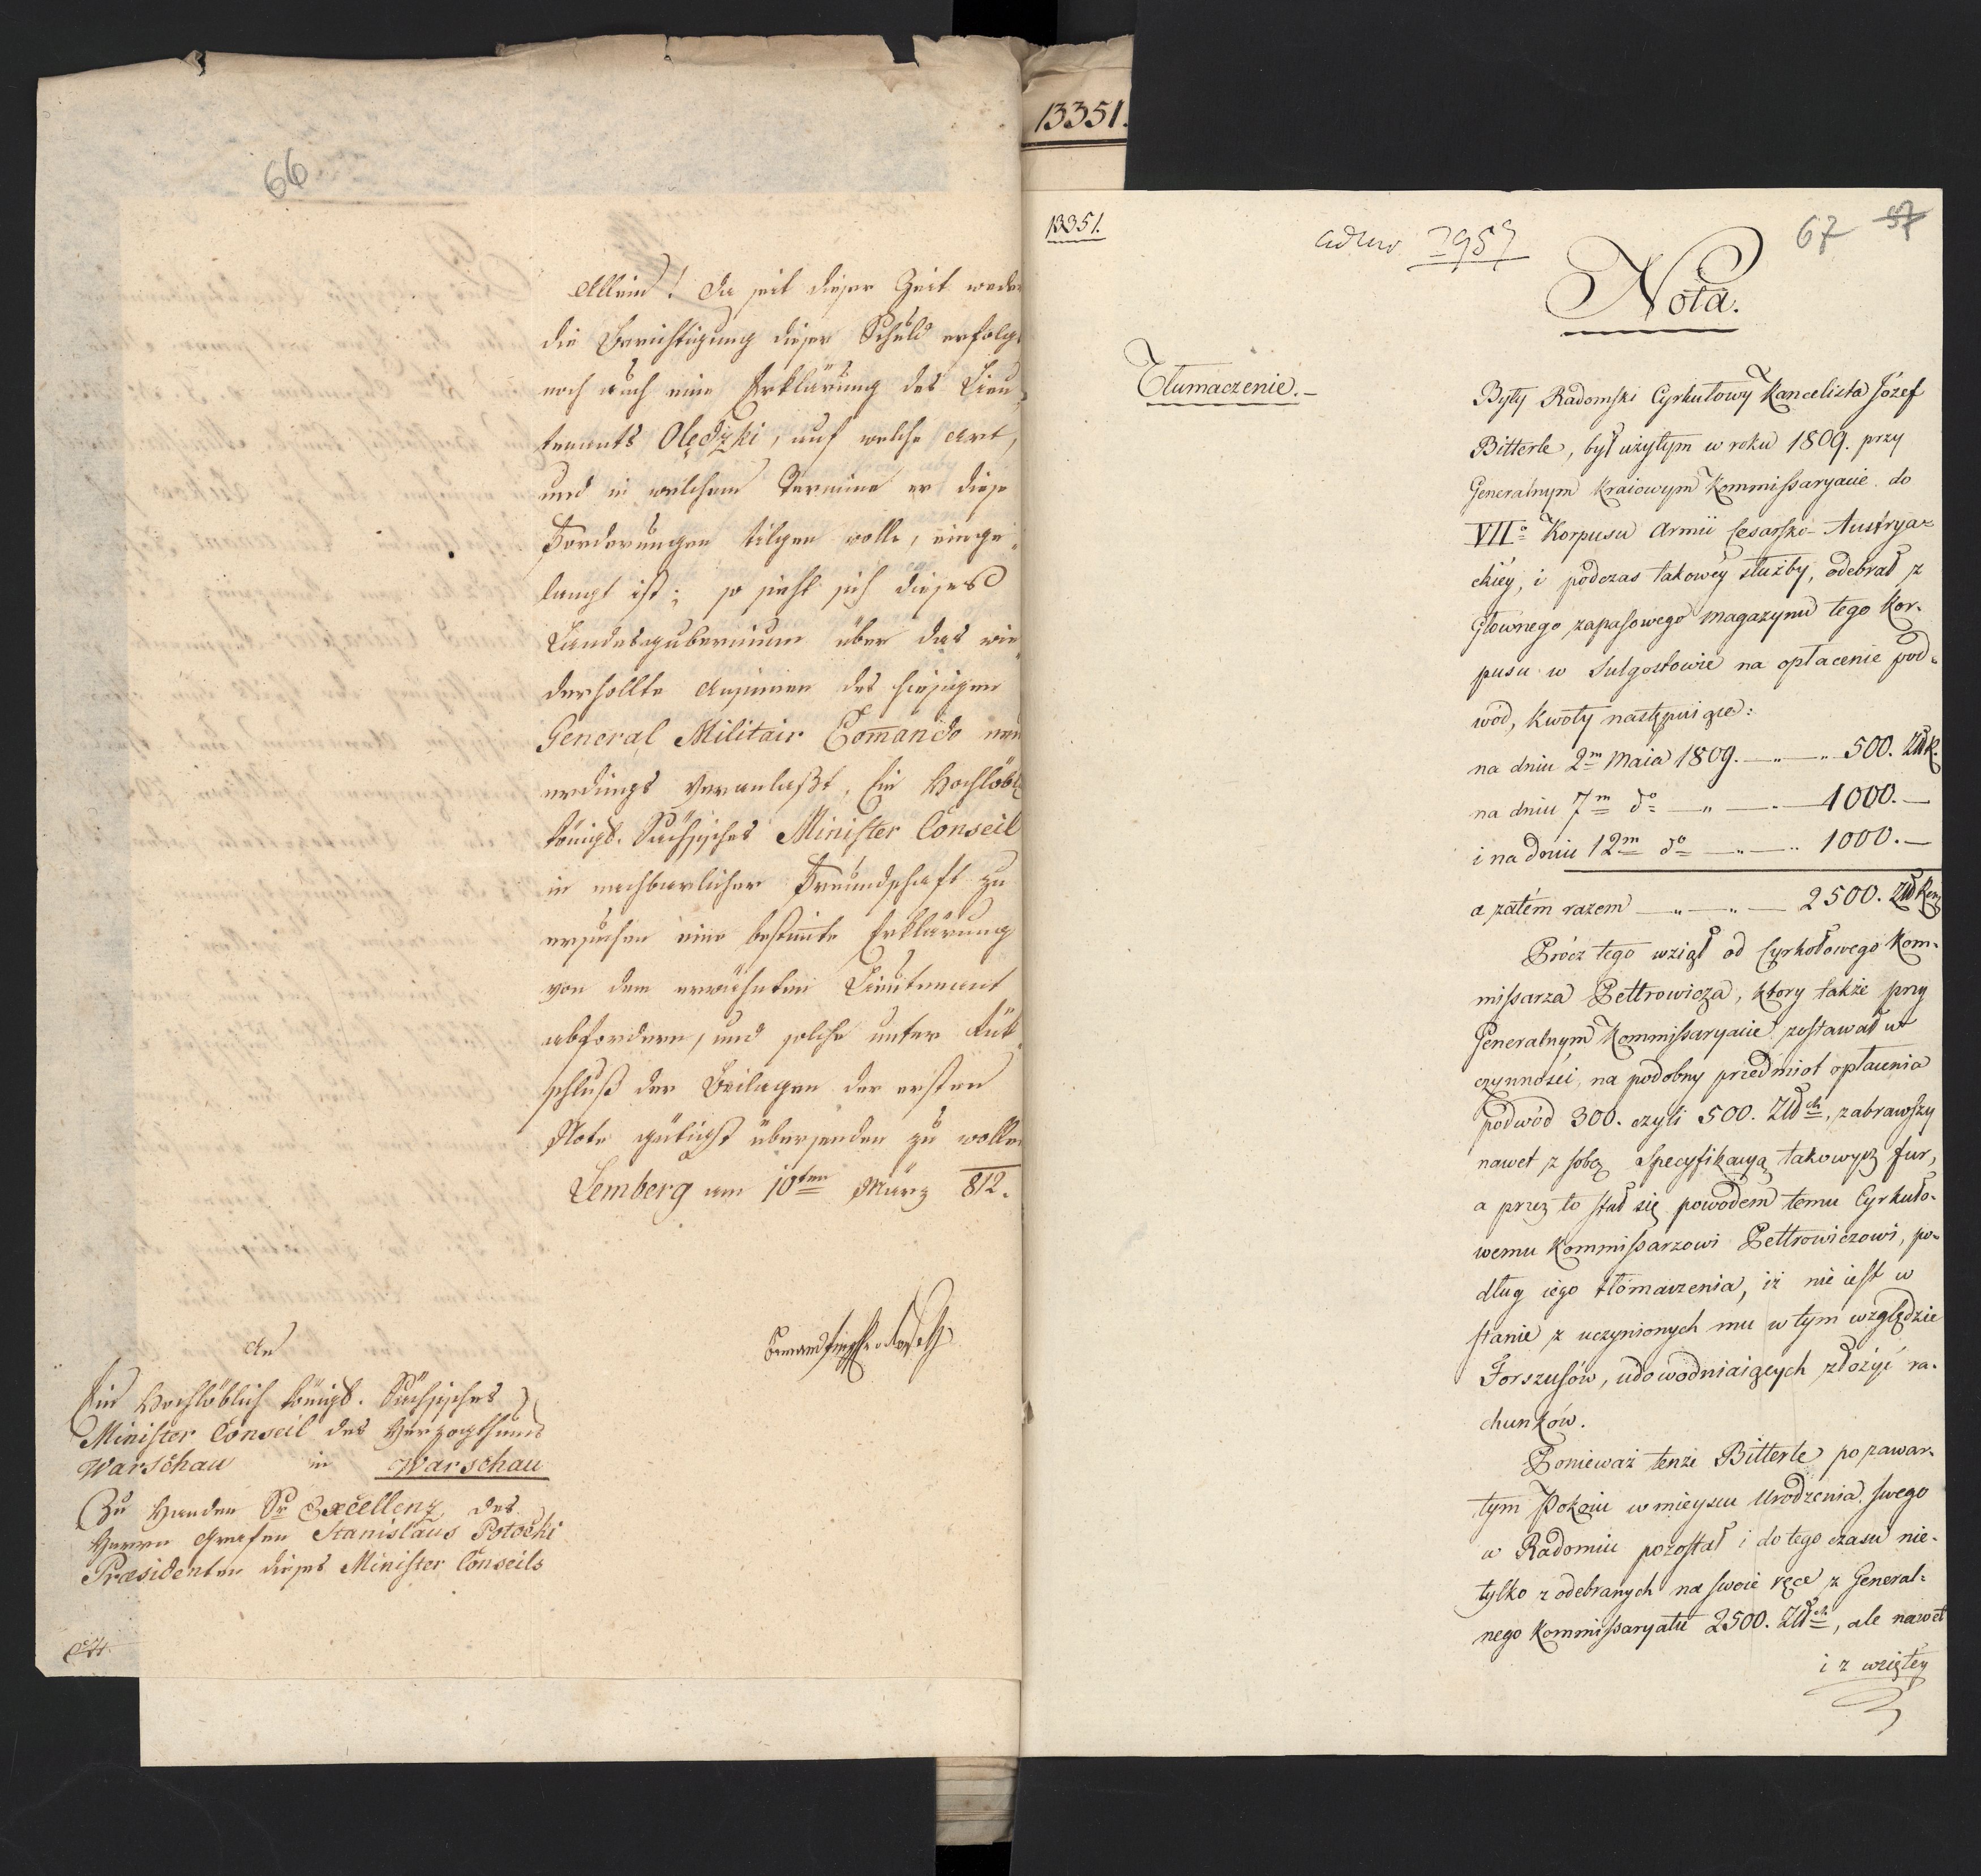 66
Allein! da seit dieser Zeit weder
die Berichtigung dieser Schuld erfolgt
noch auch eine Erklärung des Lieu-
tenants Olędzki, auf welche Art,
und in welchem Termine er diese
Forderungen tilgen wolle, einge-
langt ist; so sieht sich dieses
Landesgubernium über das wie-
derhollte Ansinnen des hiesigen
General Militair Comando neu
erdings veranlaßt, Ein Hochlöbl
königl. Sächsisches Minister Conseil
in nachbarlicher Freundschaft zu
ersuchen eine bestimte Erklärung
von dem erwähnten Lieutenant
abfordern, und solche unter
schluß der Beilagen der ersten
Note gütigst übersenden zu wollen
Lemberg am 10ten März 812.
An
Ein Hochlöblich königl. Sächsisches
Minister Conseil des Herzogthums
Warschau in Warschau
Zu Handen Sr Excellenz des
Herrn Grafen Stanislaus Potocki
Præsidenten dieses Minister Conseils
13351.
13351.
2957
67 37
Nota.
Tłumaczenie.-
Były Radomski Cyrkułowy Kancelista Józef
Bitterle, był użytym w roku 1809. przy
Generalnym Kraiowym Kommissaryacie do
VIIo Korpusu Armii Cesarsko-Austrya-
ckiey, i podczas takowey służby, odebrał z
Głownego zapasowego magazynu tego Kor-
pusu w Sulgostowie na opłacenie pod-
wod, kwoty następuiące:
na dniu 2m Maia 1809. —„—„ 500. ZłłR.
na dniu 7m do —„— 1000.—
i na dniu 12m do —„—„ 1000.—
a zatém razem —„—„— 2500. ZłłRen
Prócz tego wziął od Cyrkołowego Kom-
missarza Pettrowicza, ktory także przy
Generalnym Kommissaryacie zostawał w
czynności, na podobny przedmiot opłacenia
podwód 300. czyli 500. Złłch, zabrawszy
nawet z sobą Specyfikacyą takowych fur,
a przez to stał się powodem temu Cyrkuło-
wemu Kommissarzowi Pettrowiczowi, po-
dług iego tłómaczenia, iż nie iest w
stanie z uczynionych mu w tym względzie
Forszusów, udowodniaiących złożyć ra-
chunków.
Ponieważ tenże Bitterle po zawar-
tym Pokoiu w mieyscu Urodzenia swego
w Radomiu pozostał i do tego czasu nie-
tylko z odebranych na swoie ręce z General-
nego Kommissaryatu 2500. Złłch, ale nawet
i z wziętey